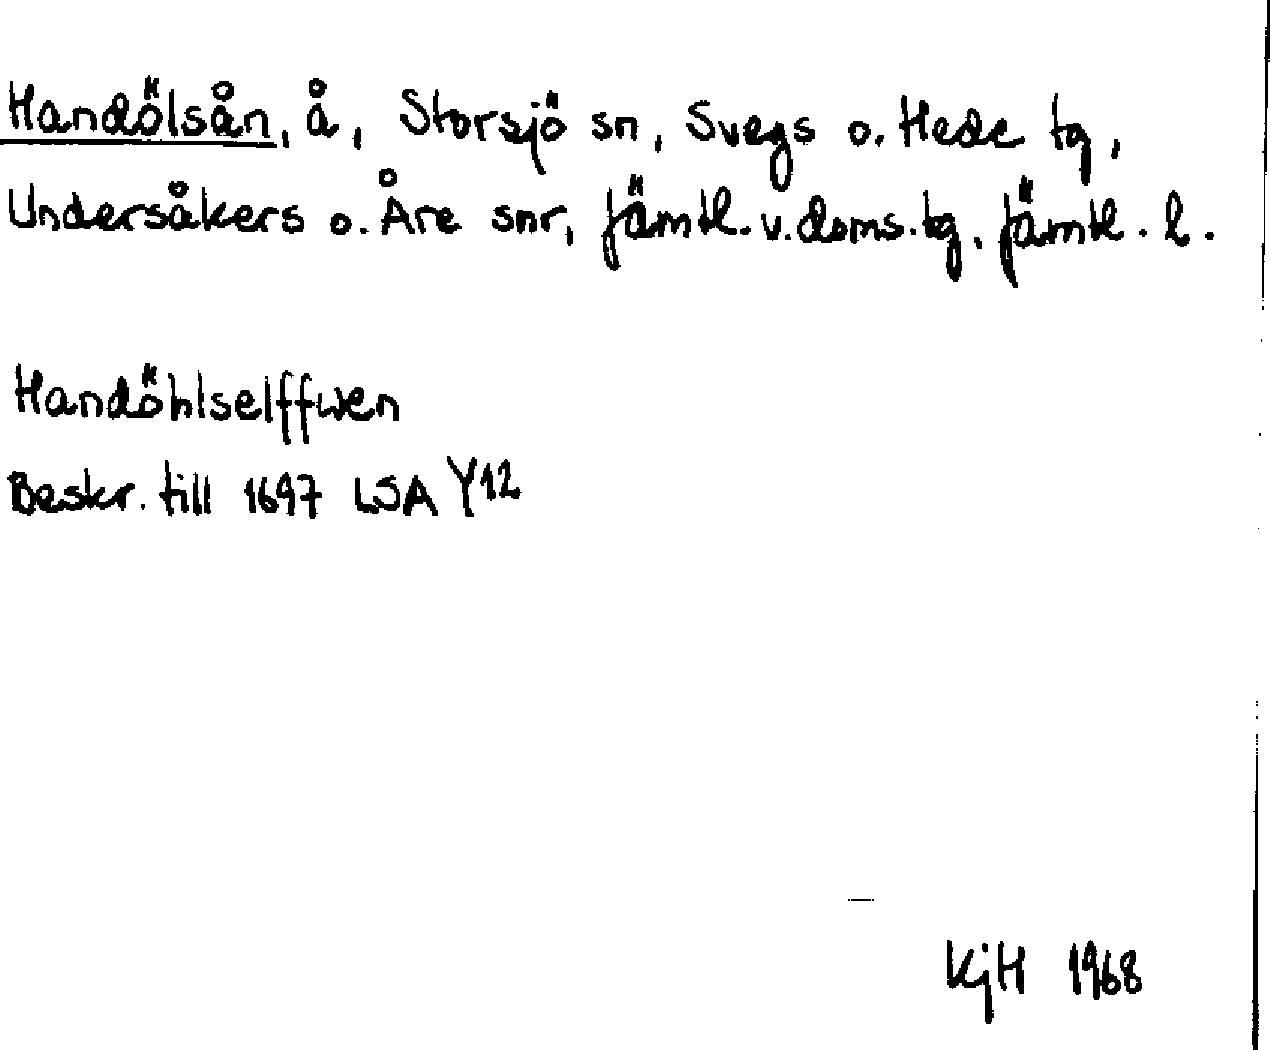 Handölsån, å, Storsjö sn, Svegs o. Hede tg,
Undersåkers o. Åre snr, Jämtl. v. doms. tg. Jämtl. l.
Handöhlselffwen
Beskr. till 1697 LSA Y12
KjH 1968